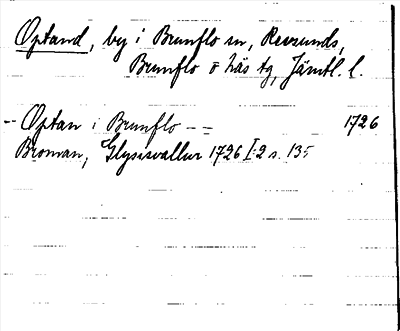 Optand, by i Brunflo sn, Revsunds,
Brunflo o Näs tg, Jämtl. l.
- Optan i Brunflo -- 1726
Broman, Glysisvallur 1726 I:2 s. 135